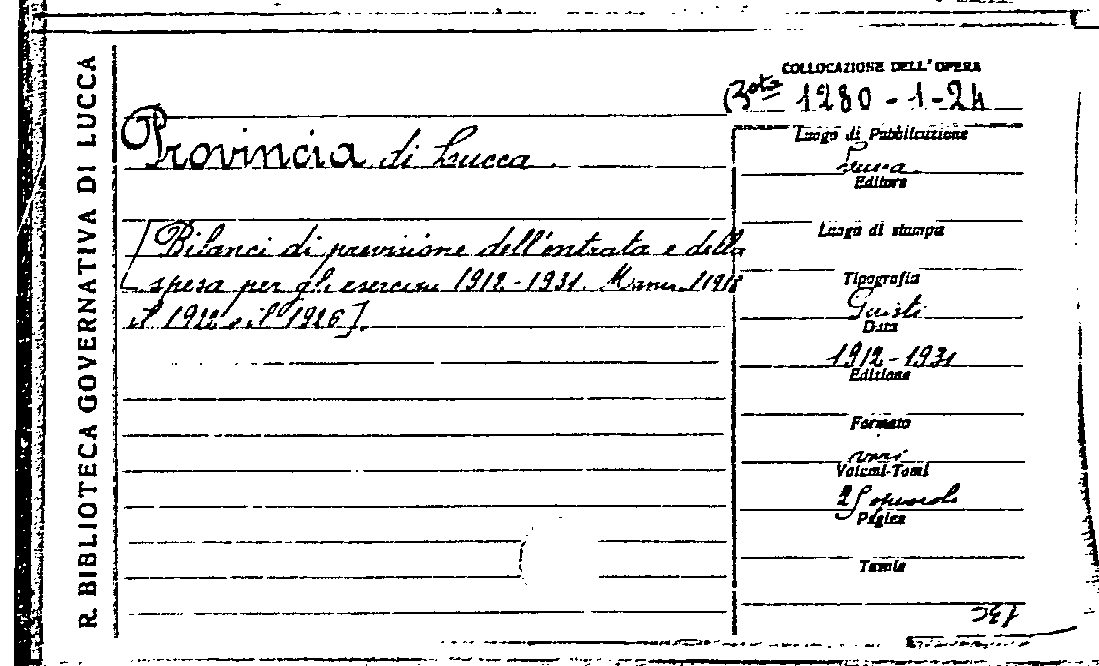 R. BIBLIOTECA GOVERNATIVA DI LUCCA
COLLOCAZIONE DELL'OPERA
1280-1-24
Provincia di Lucca.
[Bilanci di previsione dell'entrata e della
spesa per gli esercizi 1912-1931.
il 1922 e il 1926].
Luogo di Pubblicazione
Lucca
Editore
Luogo di stampa
Tipografia
Giusti
Data
1912-1931
Edizione
Formato
vari
Volumi-Tomi
opuscoli
Pagine
Tavole